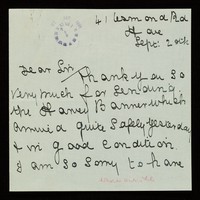 41 Learmond Rd
Hove
Sept. 20th
Dear Sir,
Thank you so
very much for sending
the Harvey Banner which
arrived quite safely yesterday
& in good condition.
I am so sorry to have